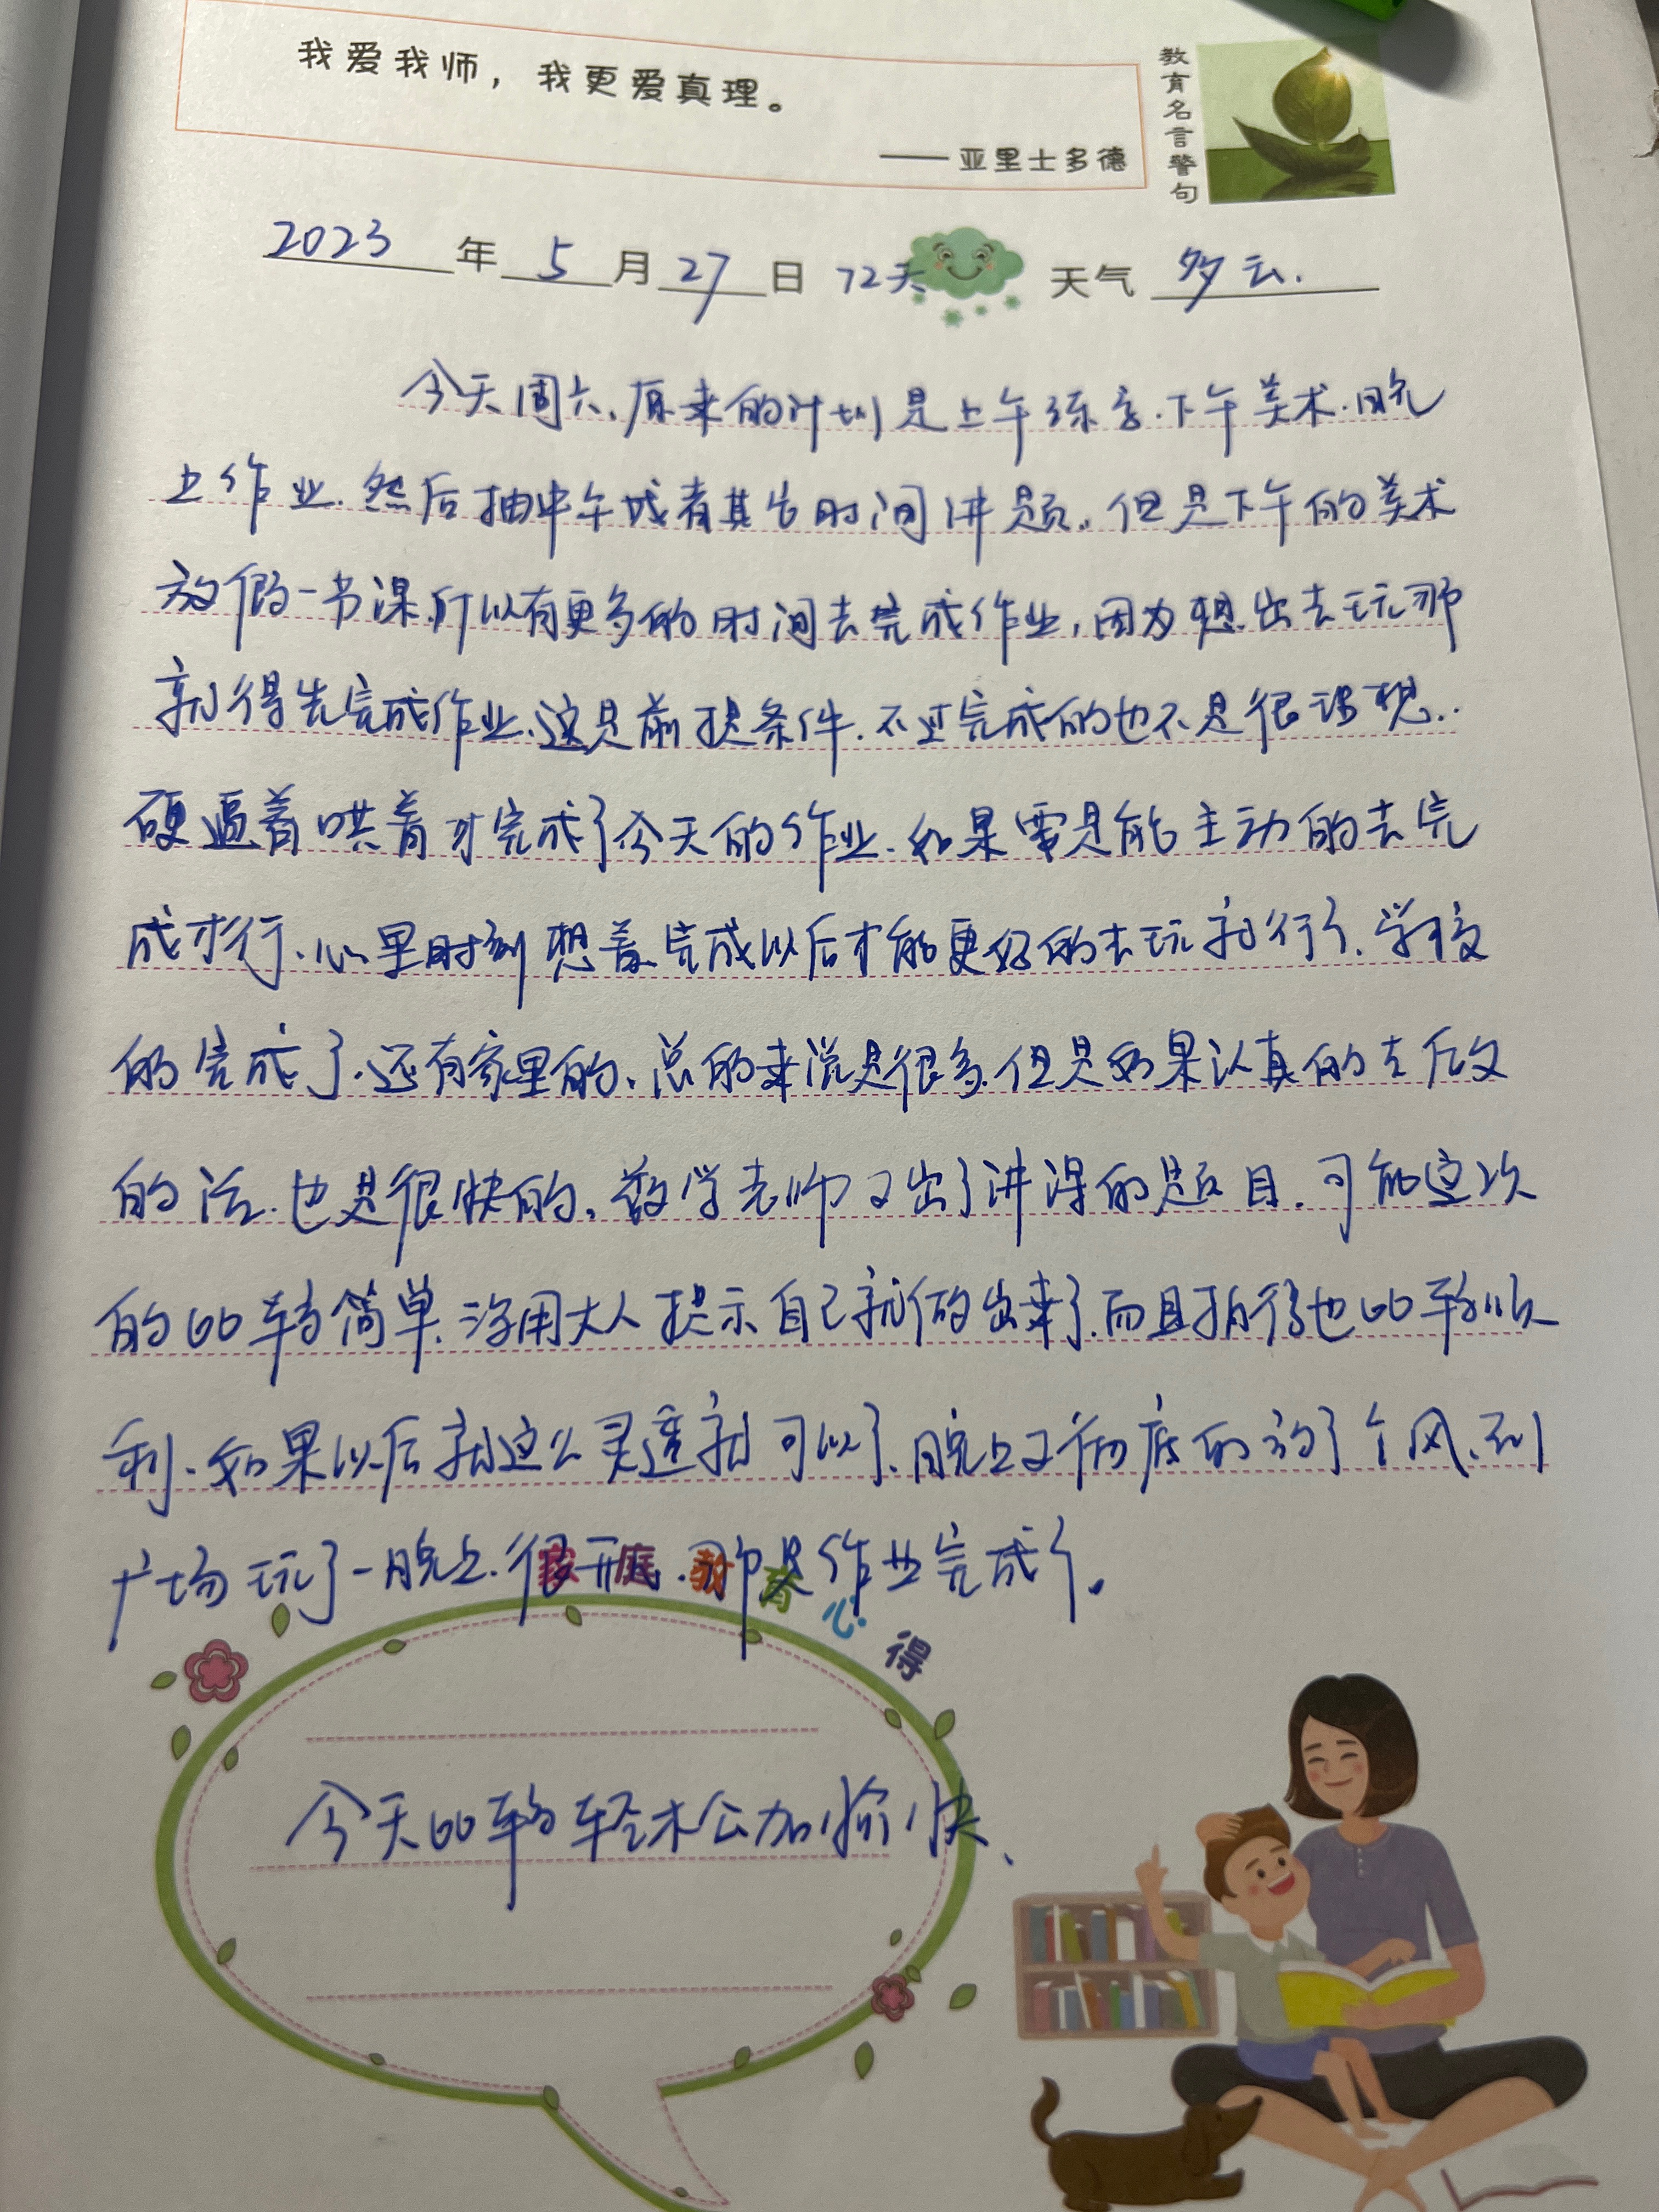 我爱我师，我更爱真理。
——亚里士多德
教育名言警句
2023年5月27日 72天 天气 多云.
今天周六、原来的计划是上午练字.下午美术.晚
上作业.然后抽中午或者其他时间讲题。但是下午的美术
放假一节课.所以有更多的时间去完成作业，因为想出去玩那
就得先完成作业.这是前提条件.不过完成的也不是很理想..
硬逼着哄着才完成了今天的作业.如果要是能主动的去完
成才行.心里时刻想着完成以后才能更好的去玩就行了.学校
的完成了.还有家里的、总的来说是很多.但是如果认真的去做
的话.也是很快的。数学老师又出了讲课的题目.可能这次
的比较简单.没用大人提示自己就做出来了.而且拍得也比较顺
利.如果以后就这么灵透就可以了.晚上又彻底的放了个风、到
广场玩了一晚上.很开心.那是作业完成了。
家庭教育心得
今天比较轻松加愉快、